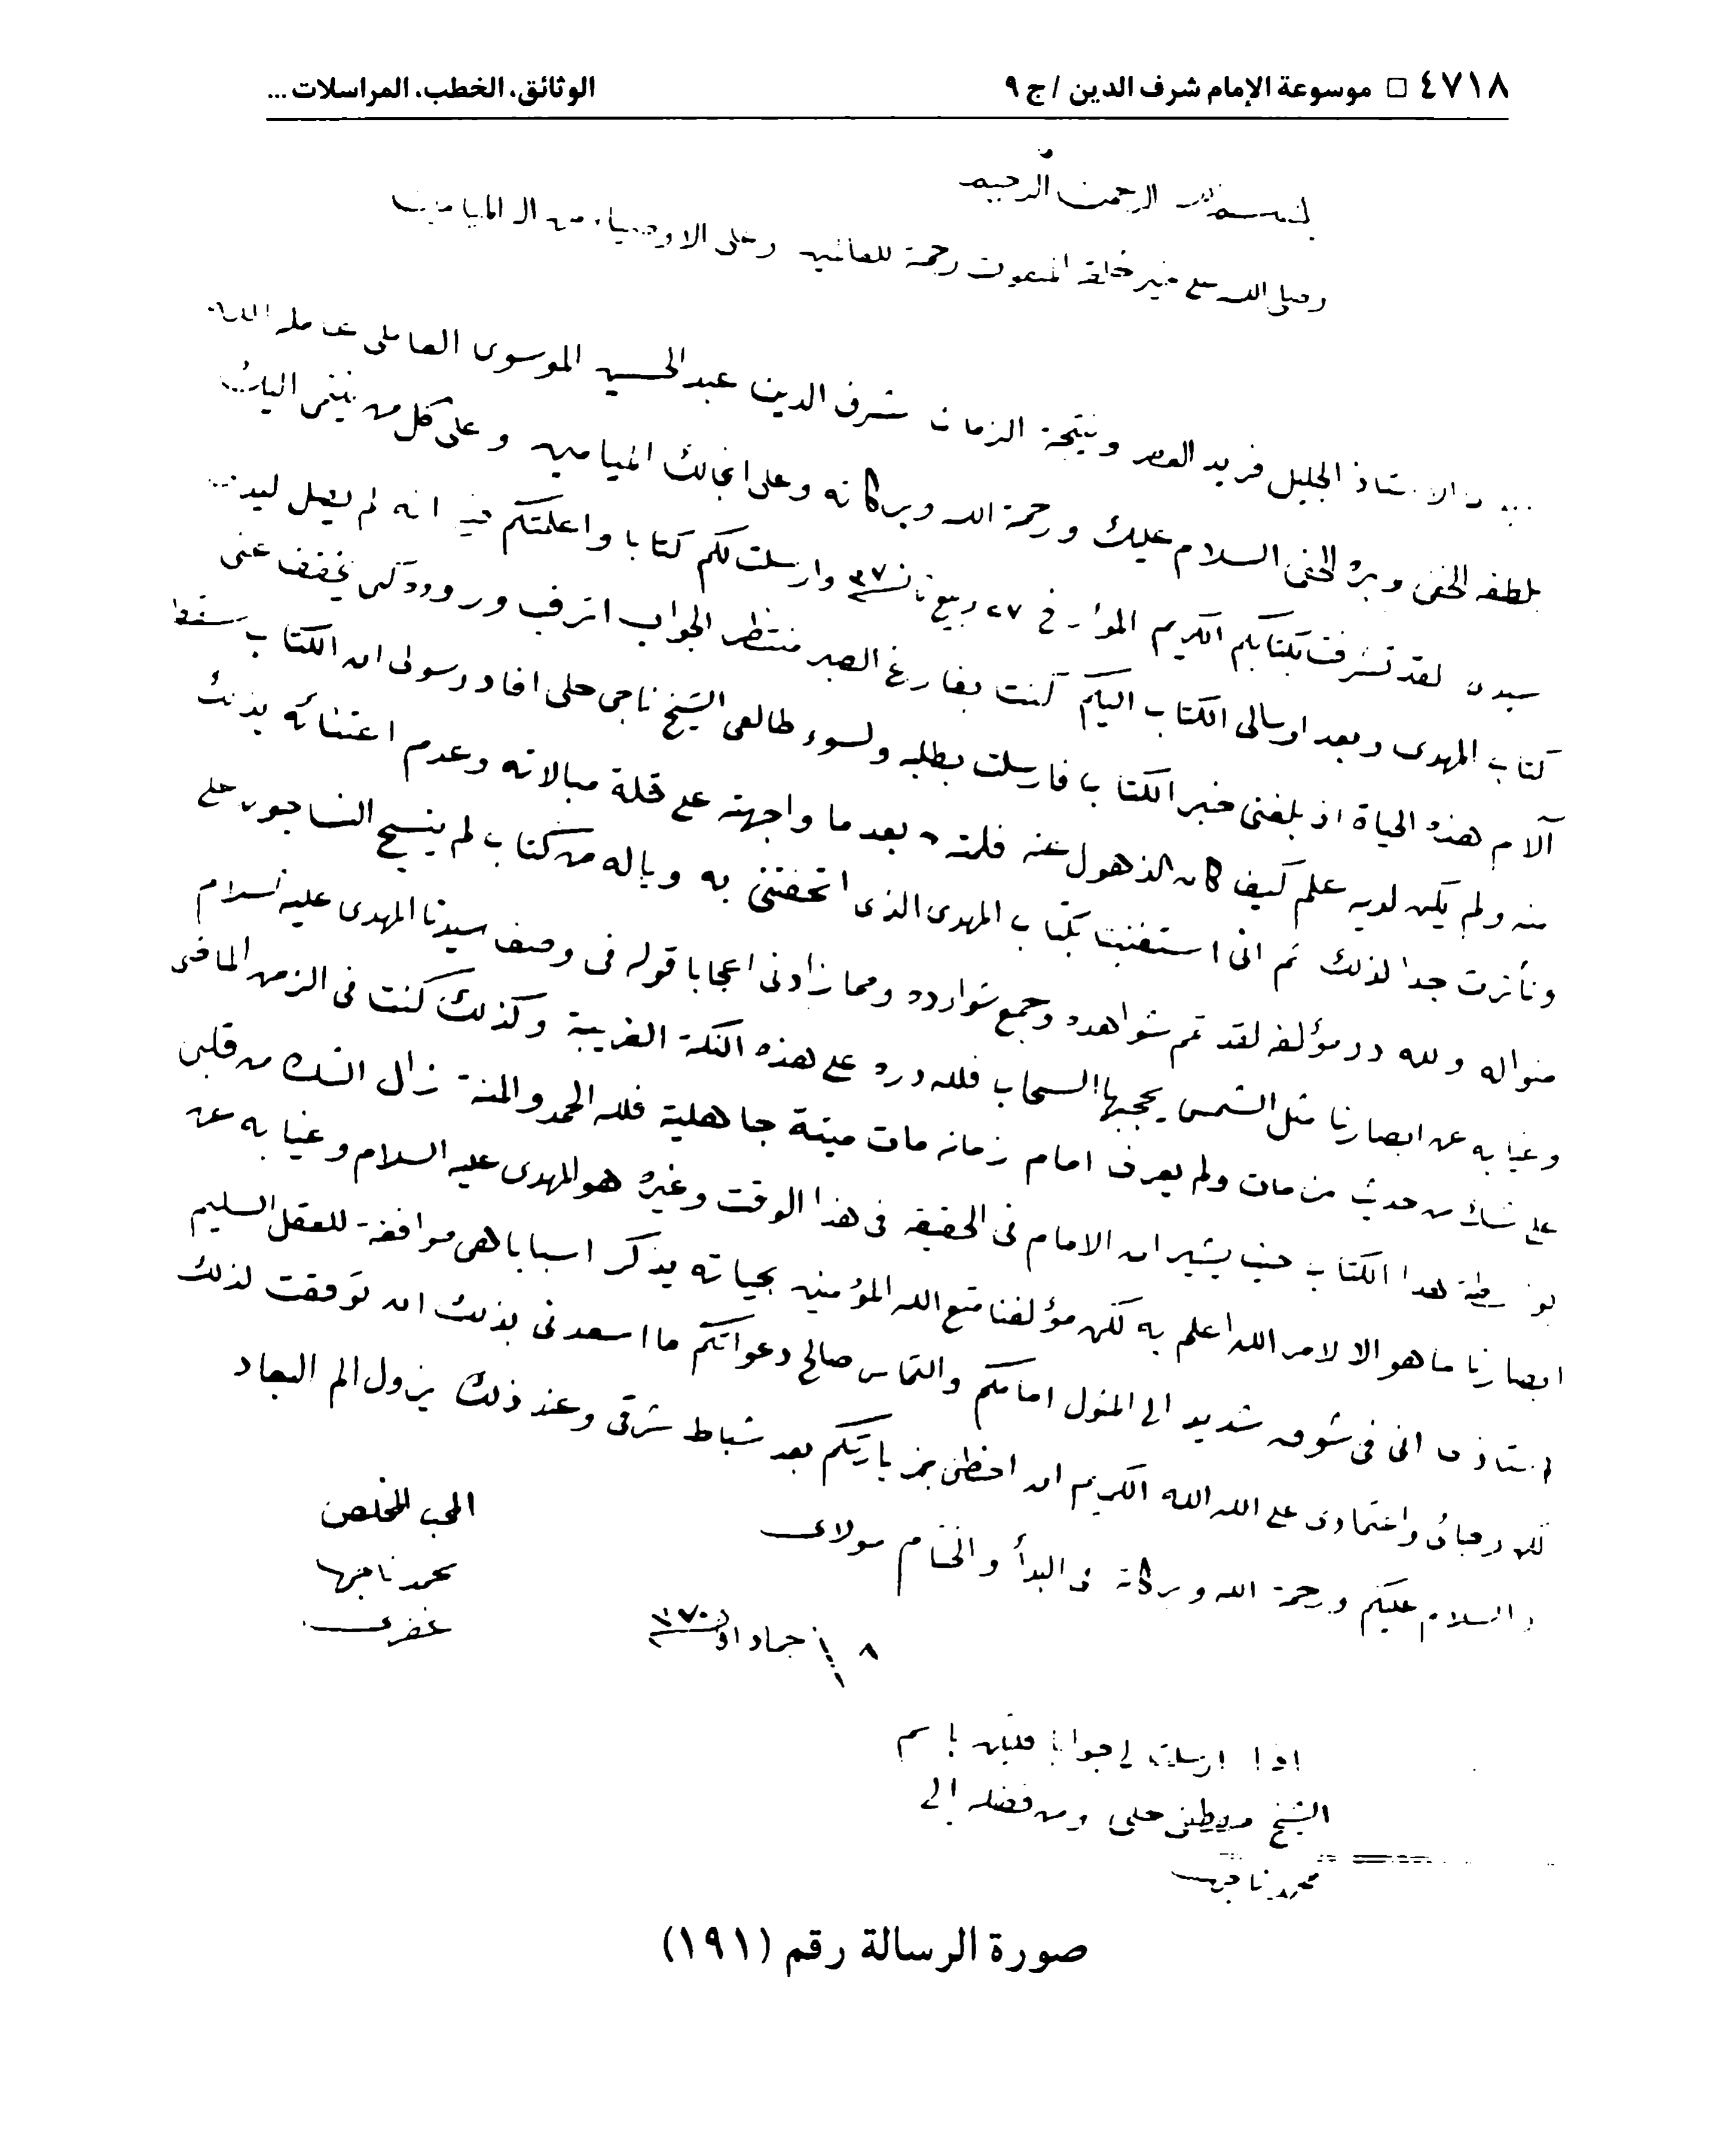 ٤٧١٨ □ موسوعة الإمام شرف الدين / ج ٩
الوثائق، الخطب، المراسلات ...
بسم الله الرحمن الرحيم
وصلى الله على خير خلقه المبعوث رحمة للعالمين وعلى الاوصياء من آله الميامين
الاستاذ الجليل فريد العصر ونتيجة الزمان شرف الدين عبدالحسين الموسوى العاملى عامله الله
بلطفه الخفى وبره الحفى السلام عليك ورحمة الله وبركاته وعلى انجالك الميامين وعلى كل من ينتمى اليك
سيدى لقد تشرفت بكتابكم الكريم المؤرخ فى ٢٧ ربيع وارسلت لكم كتابا واعلمتكم فيه انه لم يصل ليدى
كتاب المهدى وبعد ارسالى الكتاب اليكم كنت بفارغ الصبر منتظر الجواب اترقب وروده كى يخفف عنى
آلام هذه الحياة اذ بلغنى خبر الكتاب فارسلت بطلبه ولسوء طالعى الشيخ ناجى حلى افاد رسولى ان الكتاب سقط
منه ولم يكن لديه علم كيف كان الذهول عنه فلمته بعد ما واجهته على قلة مبالاته وعدم اعتنائه بذلك
وتأثرت جدا لذلك ثم انى استغنيت بكتاب المهدى الذى اتحفتنى به وياله من كتاب لم ينسج الناسجون على
منواله ولله در مؤلفه لقد تم شواهده وجمع شوارده ومما زادنى اعجابا قوله فى وصف سيدنا المهدى عليه السلام
وغيابه عن ابصارنا مثل الشمس يحجبها السحاب فلله دره على هذه النكتة الغريبة وكذلك كنت فى الزمن الماضى
على شك من حديث من مات ولم يعرف امام زمانه مات ميتة جاهلية فلله الحمد والمنة زال الشك من قلبى
بواسطة هذا الكتاب حيث يشير ان الامام فى الحقيقة فى هذا الوقت وغيره هو المهدى عليه السلام وغيابه عن
ابصارنا ما هو الا لامر الله اعلم به لكن مؤلفنا متع الله المؤمنين بحياته يذكر اسبابا هى موافقة للعقل السليم
استاذى انى فى شوق شديد الى المثول امامكم والتماس صالح دعواتكم ما اسعدنى بذلك ان توفقت لذلك
لكن رجائى واعتمادى على الله الكريم ان احظى بزيارتكم بعد شباط شرقى وعند ذلك يزول الم البعاد
والسلام عليكم ورحمة الله وبركاته فى البدأ والختام مولاى
المحب المخلص
محمد ناجى
٨ جماد ١٣٧٠
اذا ارسلت لى جوابا فليكن باسم
الشيخ مصطفى حلى ومن فضله الى
محمد ناجى
صورة الرسالة رقم (١٩١)